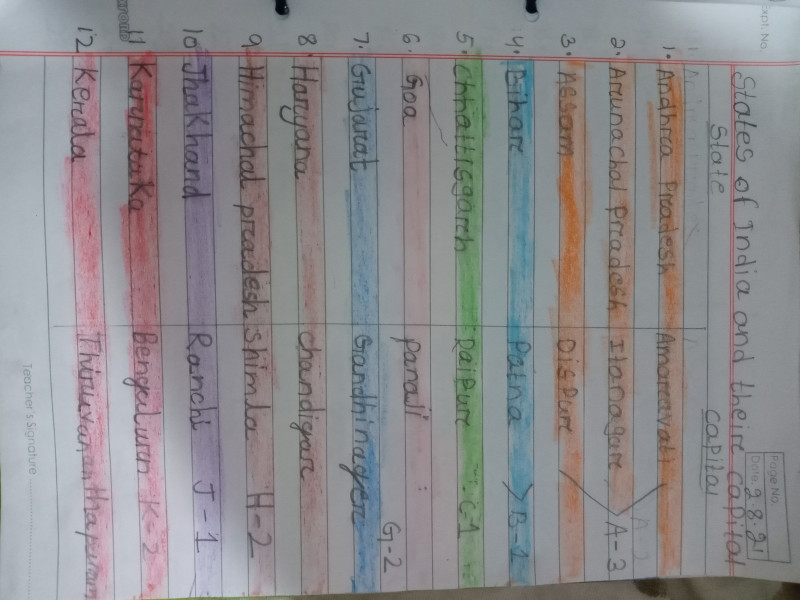 Expt. No.
Page No.
Date. 28.21
States of India and theire capital
State capital
1. Andhra Preadesh Amareavati
2. Arunachal Preadesh Itanagare A-3
3. Assam Dispure
4. Bihare Patna B-1
5. Chhattisgareh Raipure C-1
6. Goa panaji
7. Gujarat Gandhinagere G-2
8. Haryana chandigare
9. Himachal preadesh Shimla H-2
10 JhaKhand Ranchi J-1
11 Karnataka K-2
12 Kerala Thiruvananthapuram
Teacher's Signature